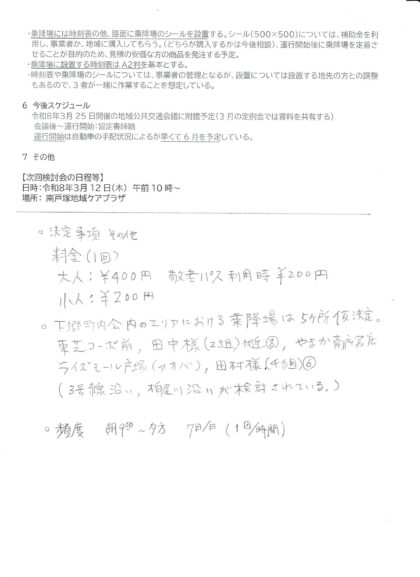 ・乗降場には時刻表の他、路面に乗降場のシールを設置する。シール(500×500)については、補助金を利
用し、事業者か、地域に購入してもらう。(どちらが購入するかは今後相談)、運行開始後に乗降場を定着さ
せることが目的のため、見積の安価な方の商品を発注する予定。
・乗降場に設置する時刻表は A2判を基本とする。
・時刻表や乗降場のシールについては、事業者の管理となるが、設置については設置する地先の方との調整
もあるので、3 者が一緒に作業することを想定している。
6 今後スケジュール
令和8年3月25日開催の地域公共交通会議に附議予定(3月の定例会では資料を共有する)
会議後~運行開始:協定書締結
運行開始は自動車の手配状況によるが早くて 6 月を予定している。
7 その他
【次回検討会の日程等】
日時:令和8年3月12日(木) 午前10時~
場所: 南戸塚地域ケアプラザ
。決定事項 その他
料金(1回)
大人:¥400円 敬老パス利用時¥200円
小人:¥200円
。下郷町内会内のエリアにおける乗降場は5ヶ所仮決定。
東芝コーポ前, 田中様(2組)付近⑧, やまか南戸塚店
ライズモール戸塚(), 田村様(4組)⑥
(3号線沿い, 柏尾川沿いが検討されている。)
。頻度 朝9:00~夕方 7日/日(1回/時間)